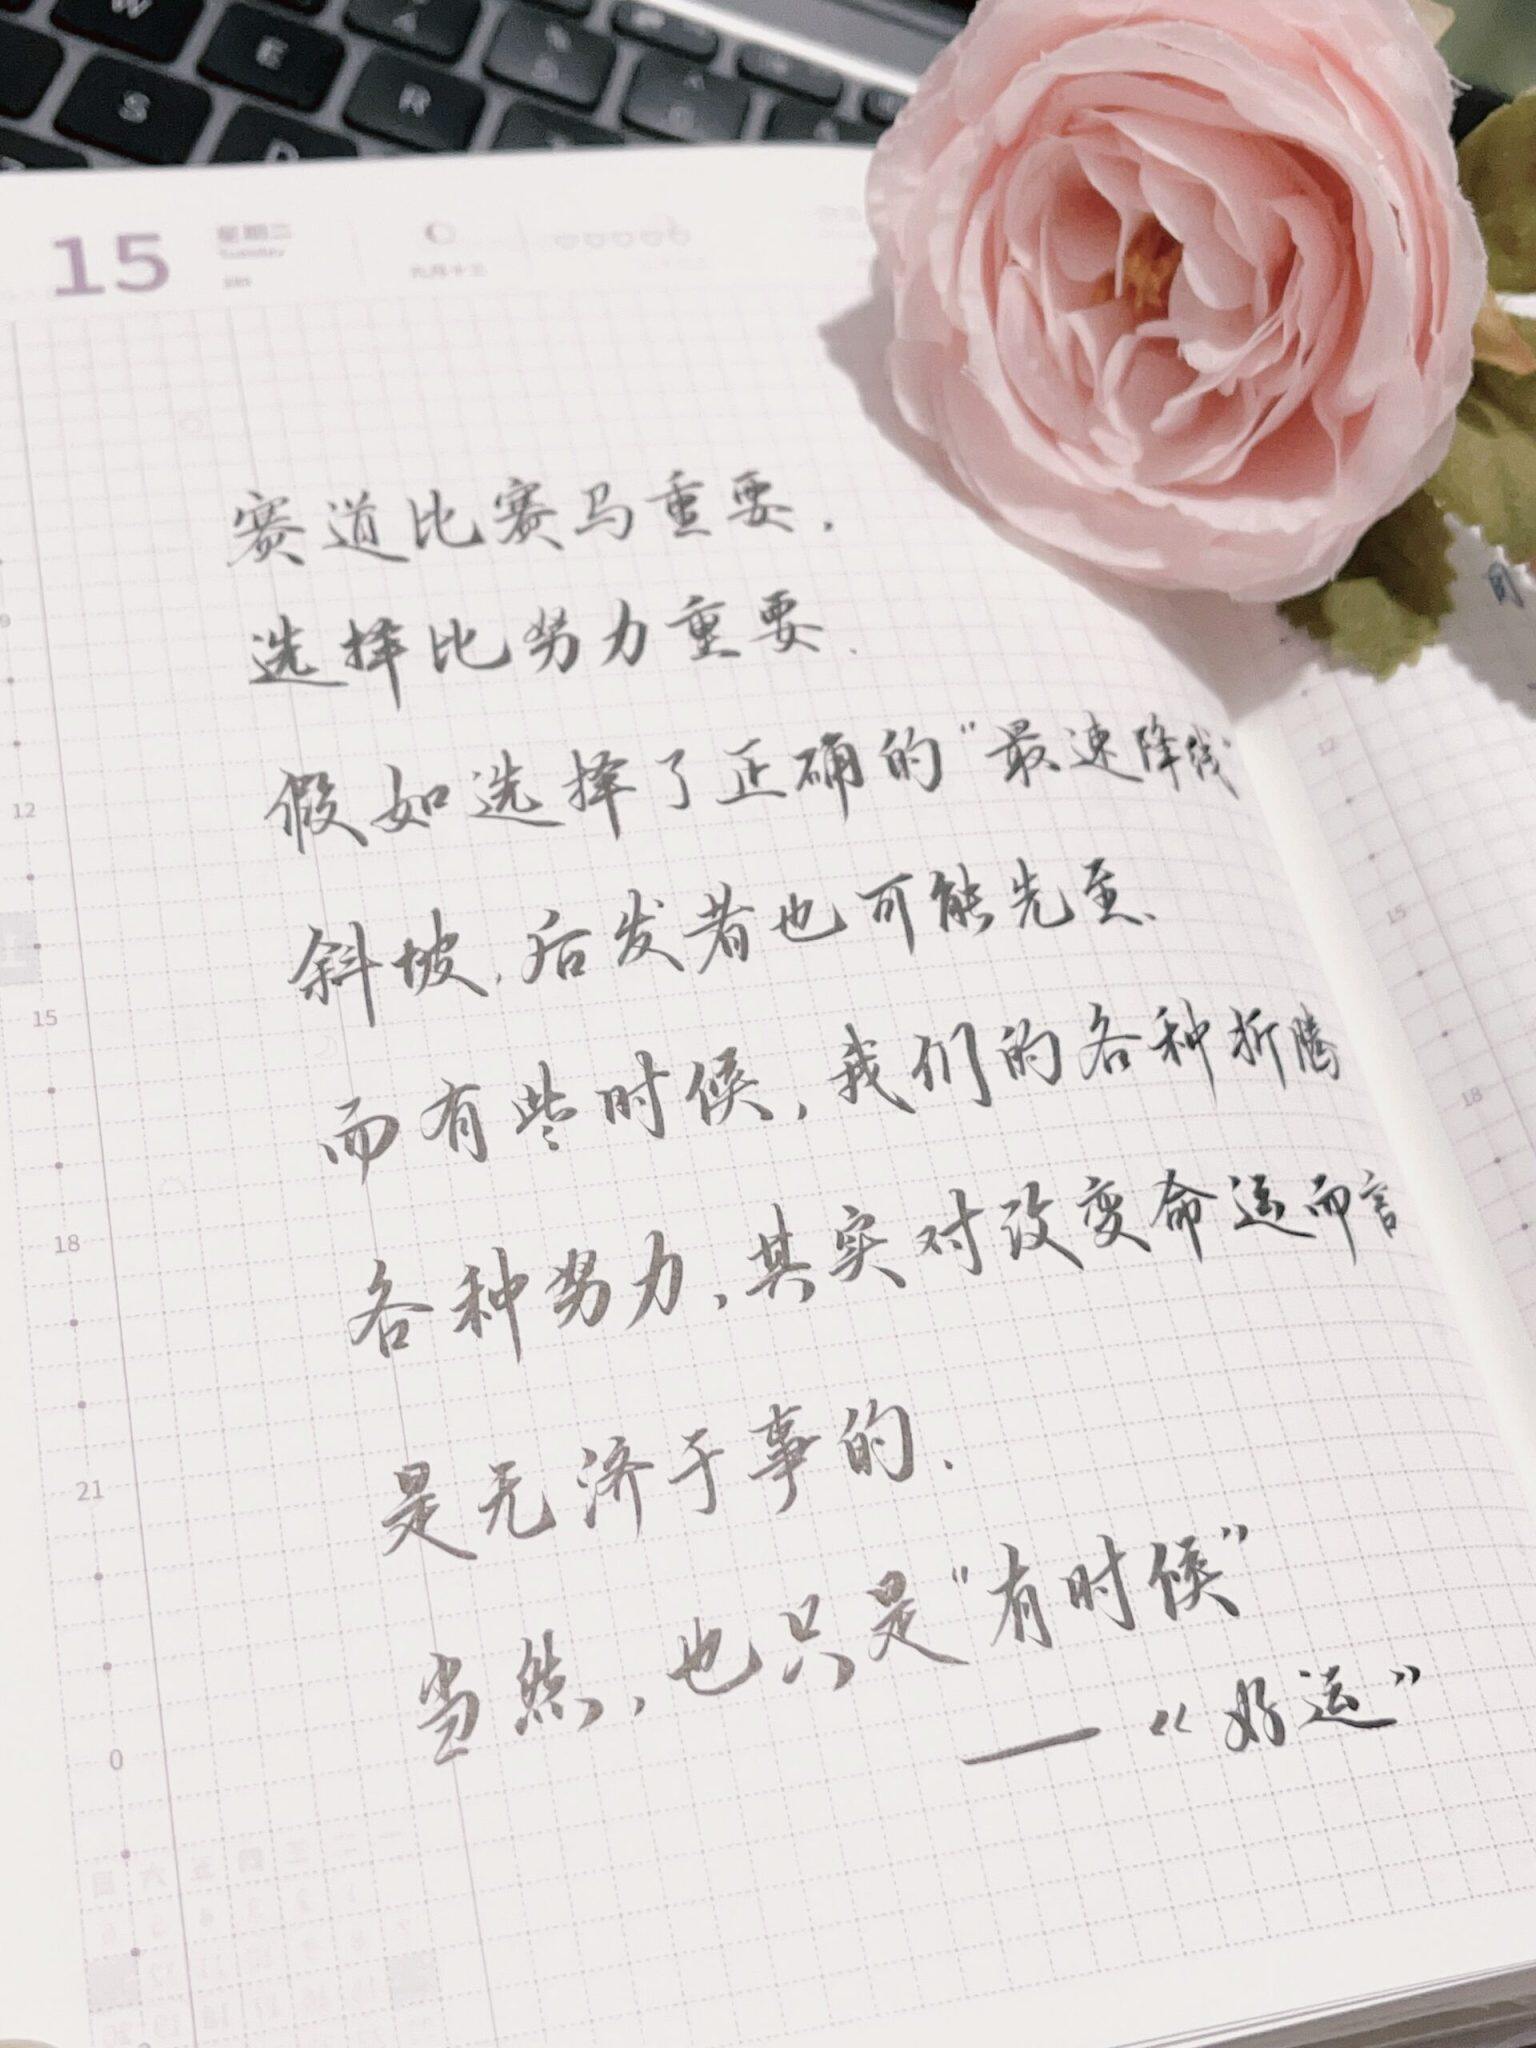 W
E
R
S
D
15
星期二
Tuesday
九月十三
赛道比赛马重要.
选择比努力重要.
假如选择了正确的“最速降线”
斜坡.后发者也可能先至.
而有些时候,我们的各种折腾
各种努力,其实对改变命运而言
是无济于事的.
当然,也只是“有时候”
—“好运”
12
15
18
21
0
12
15
18